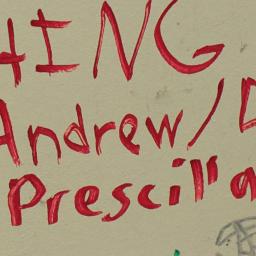 HING
Andrew/D
Prescilla